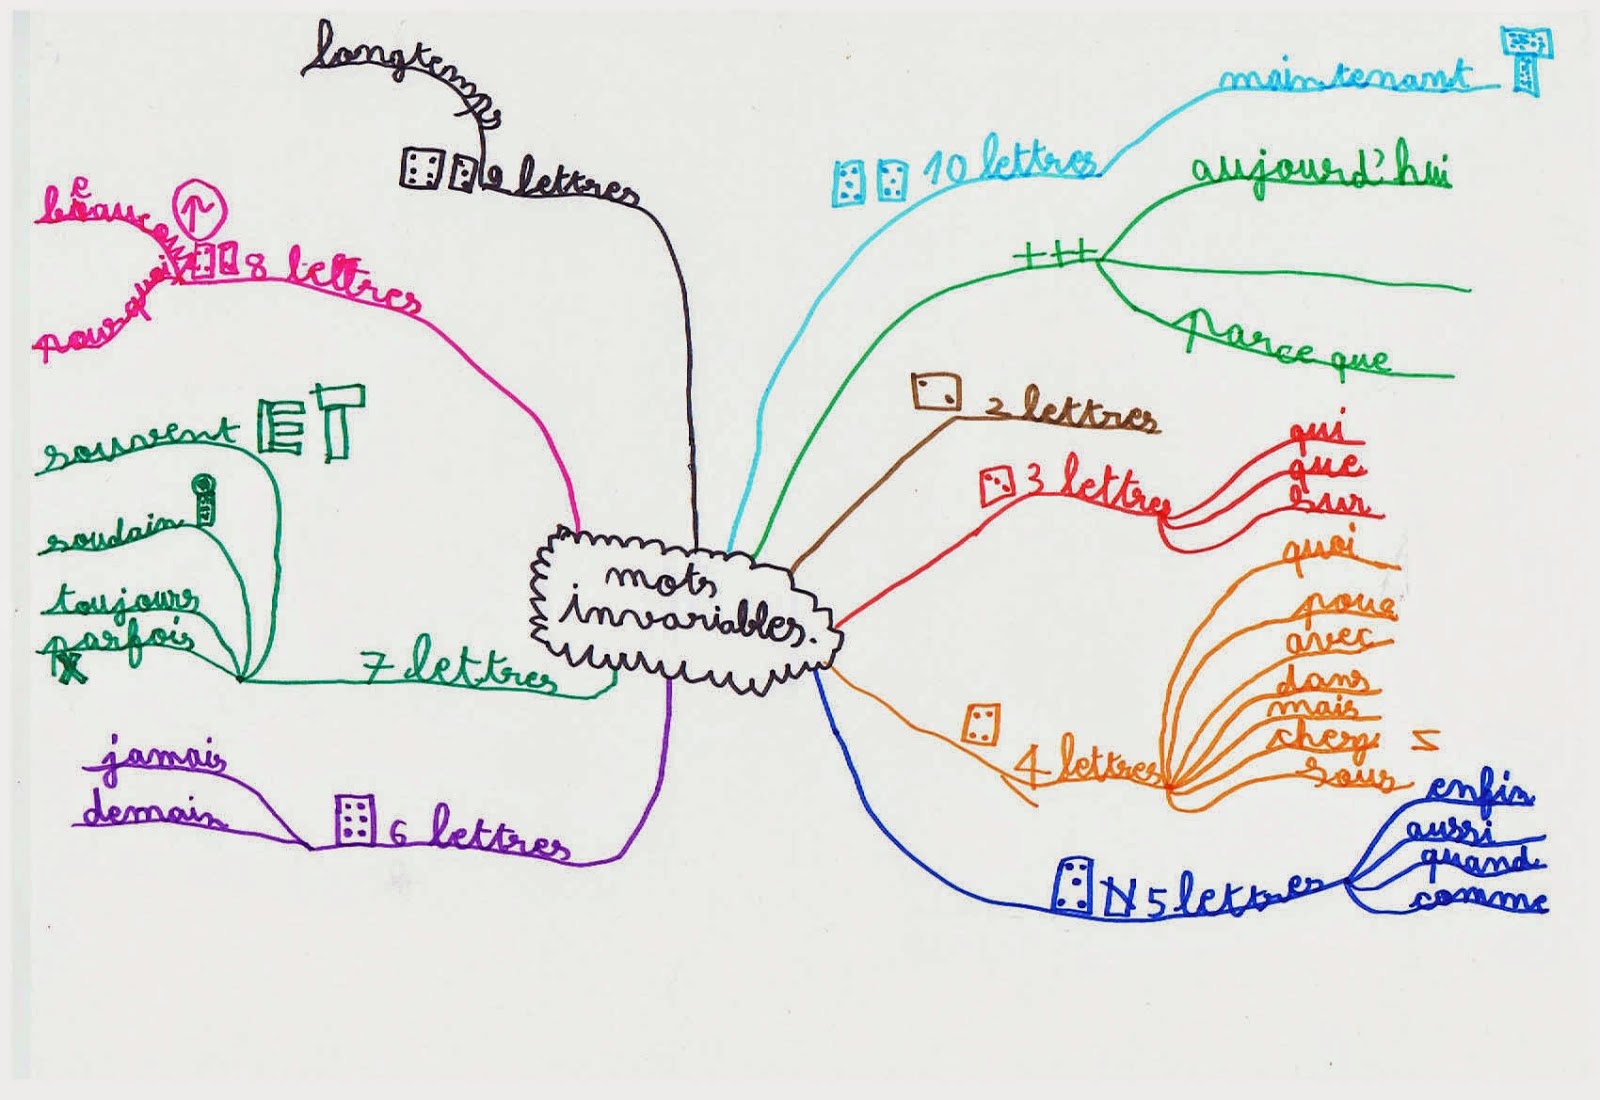 mots
invariables.
10 lettres
maintenant T
+++
aujourd'hui
parce que
2 lettres
3 lettres
qui
que
sur
4 lettres
quoi
pour
avec
dans
mais
chez
sous
5 lettres
enfin
aussi
quand
comme
6 lettres
jamais
demain
7 lettres
souvent ET
soudain
toujours
parfois
8 lettres
beaucoup
pourquoi
9 lettres
longtemps